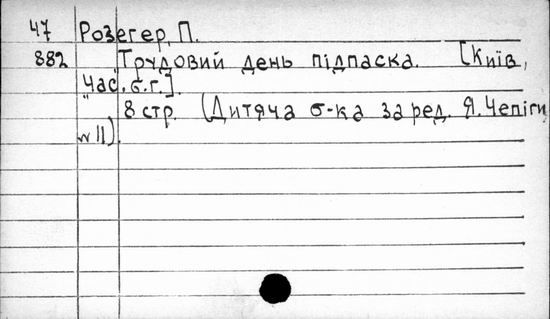 47 Розегер, П.
882 Трудовий день підпаска. [Київ,
"Час", б.г.].
8 стр. (Дитяча б-ка за ред. Я. Чепіги,
№ 11).